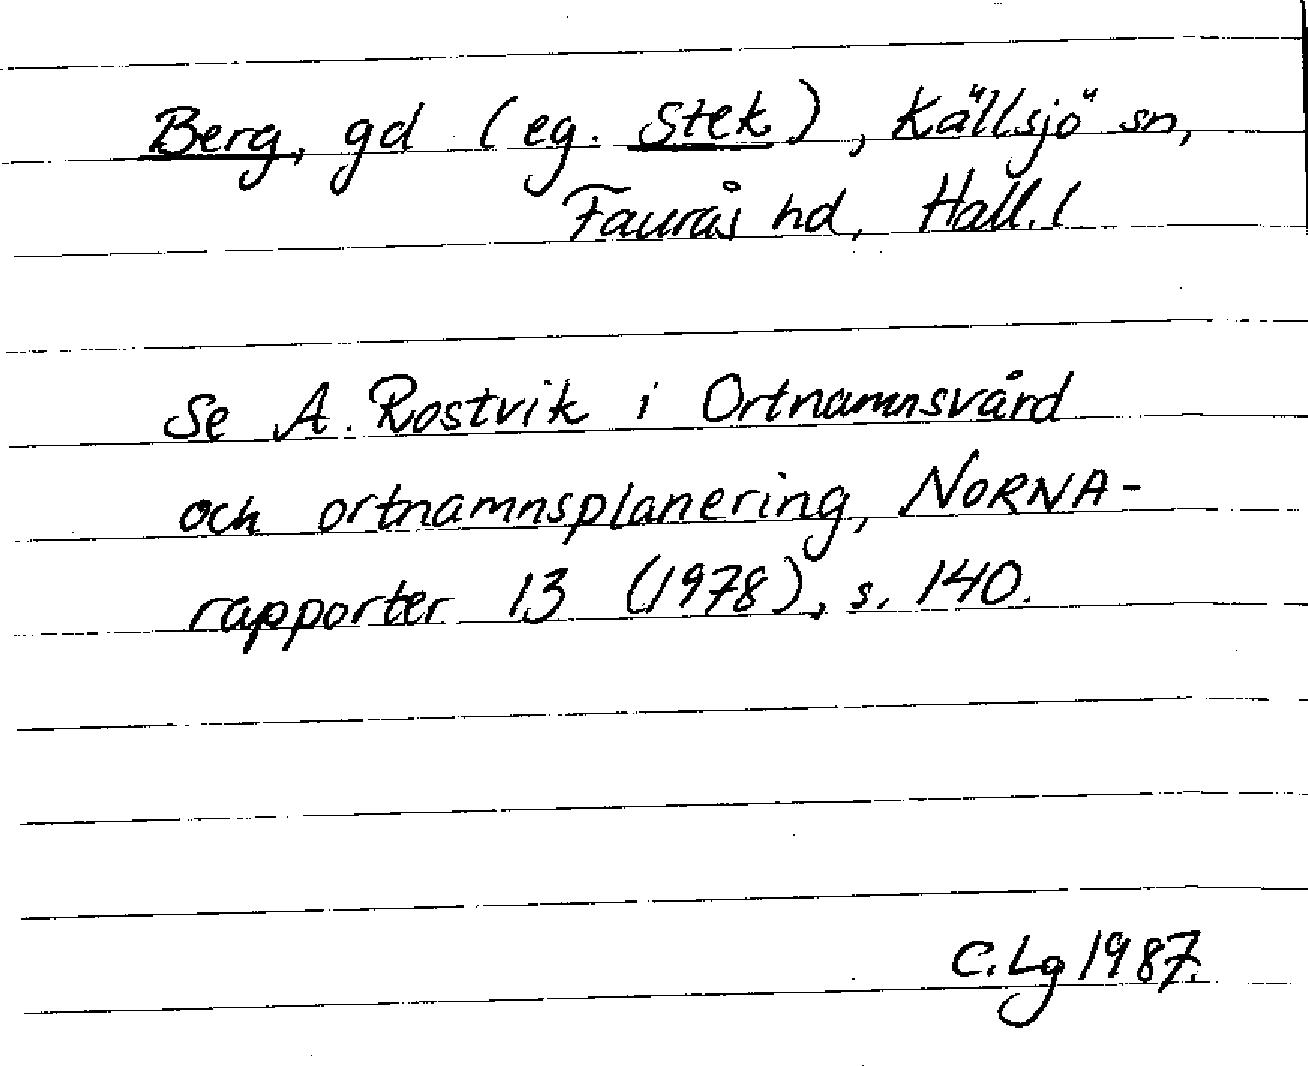 Berg, gd (eg. Stek), Källsjö sn,
Faurås hd, Hall. l
Se A. Rostvik i Ortnamnsvård
och ortnamnsplanering, NORNA-
rapporter 13 (1978), s. 140.
C. Lg 1987.